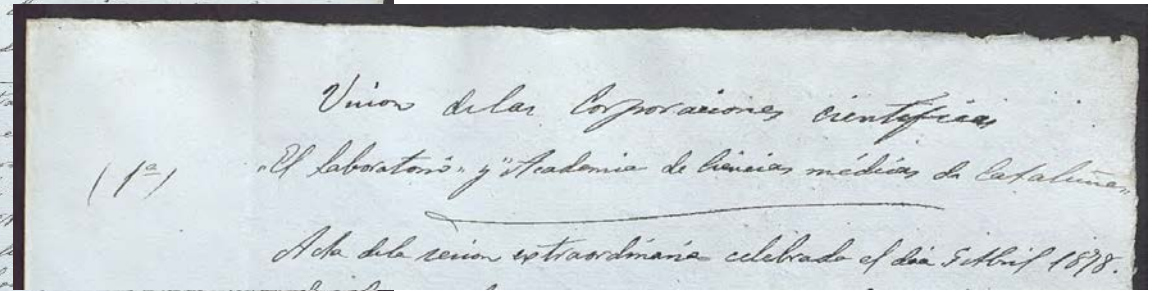 Union de las Corporaciones cientificas
(1ª)
"El laboratorio" y "Academia de Ciencias médicas de Cataluña"
Acta de la sesion extraordinaria celebrada el dia 5 Abril 1878.